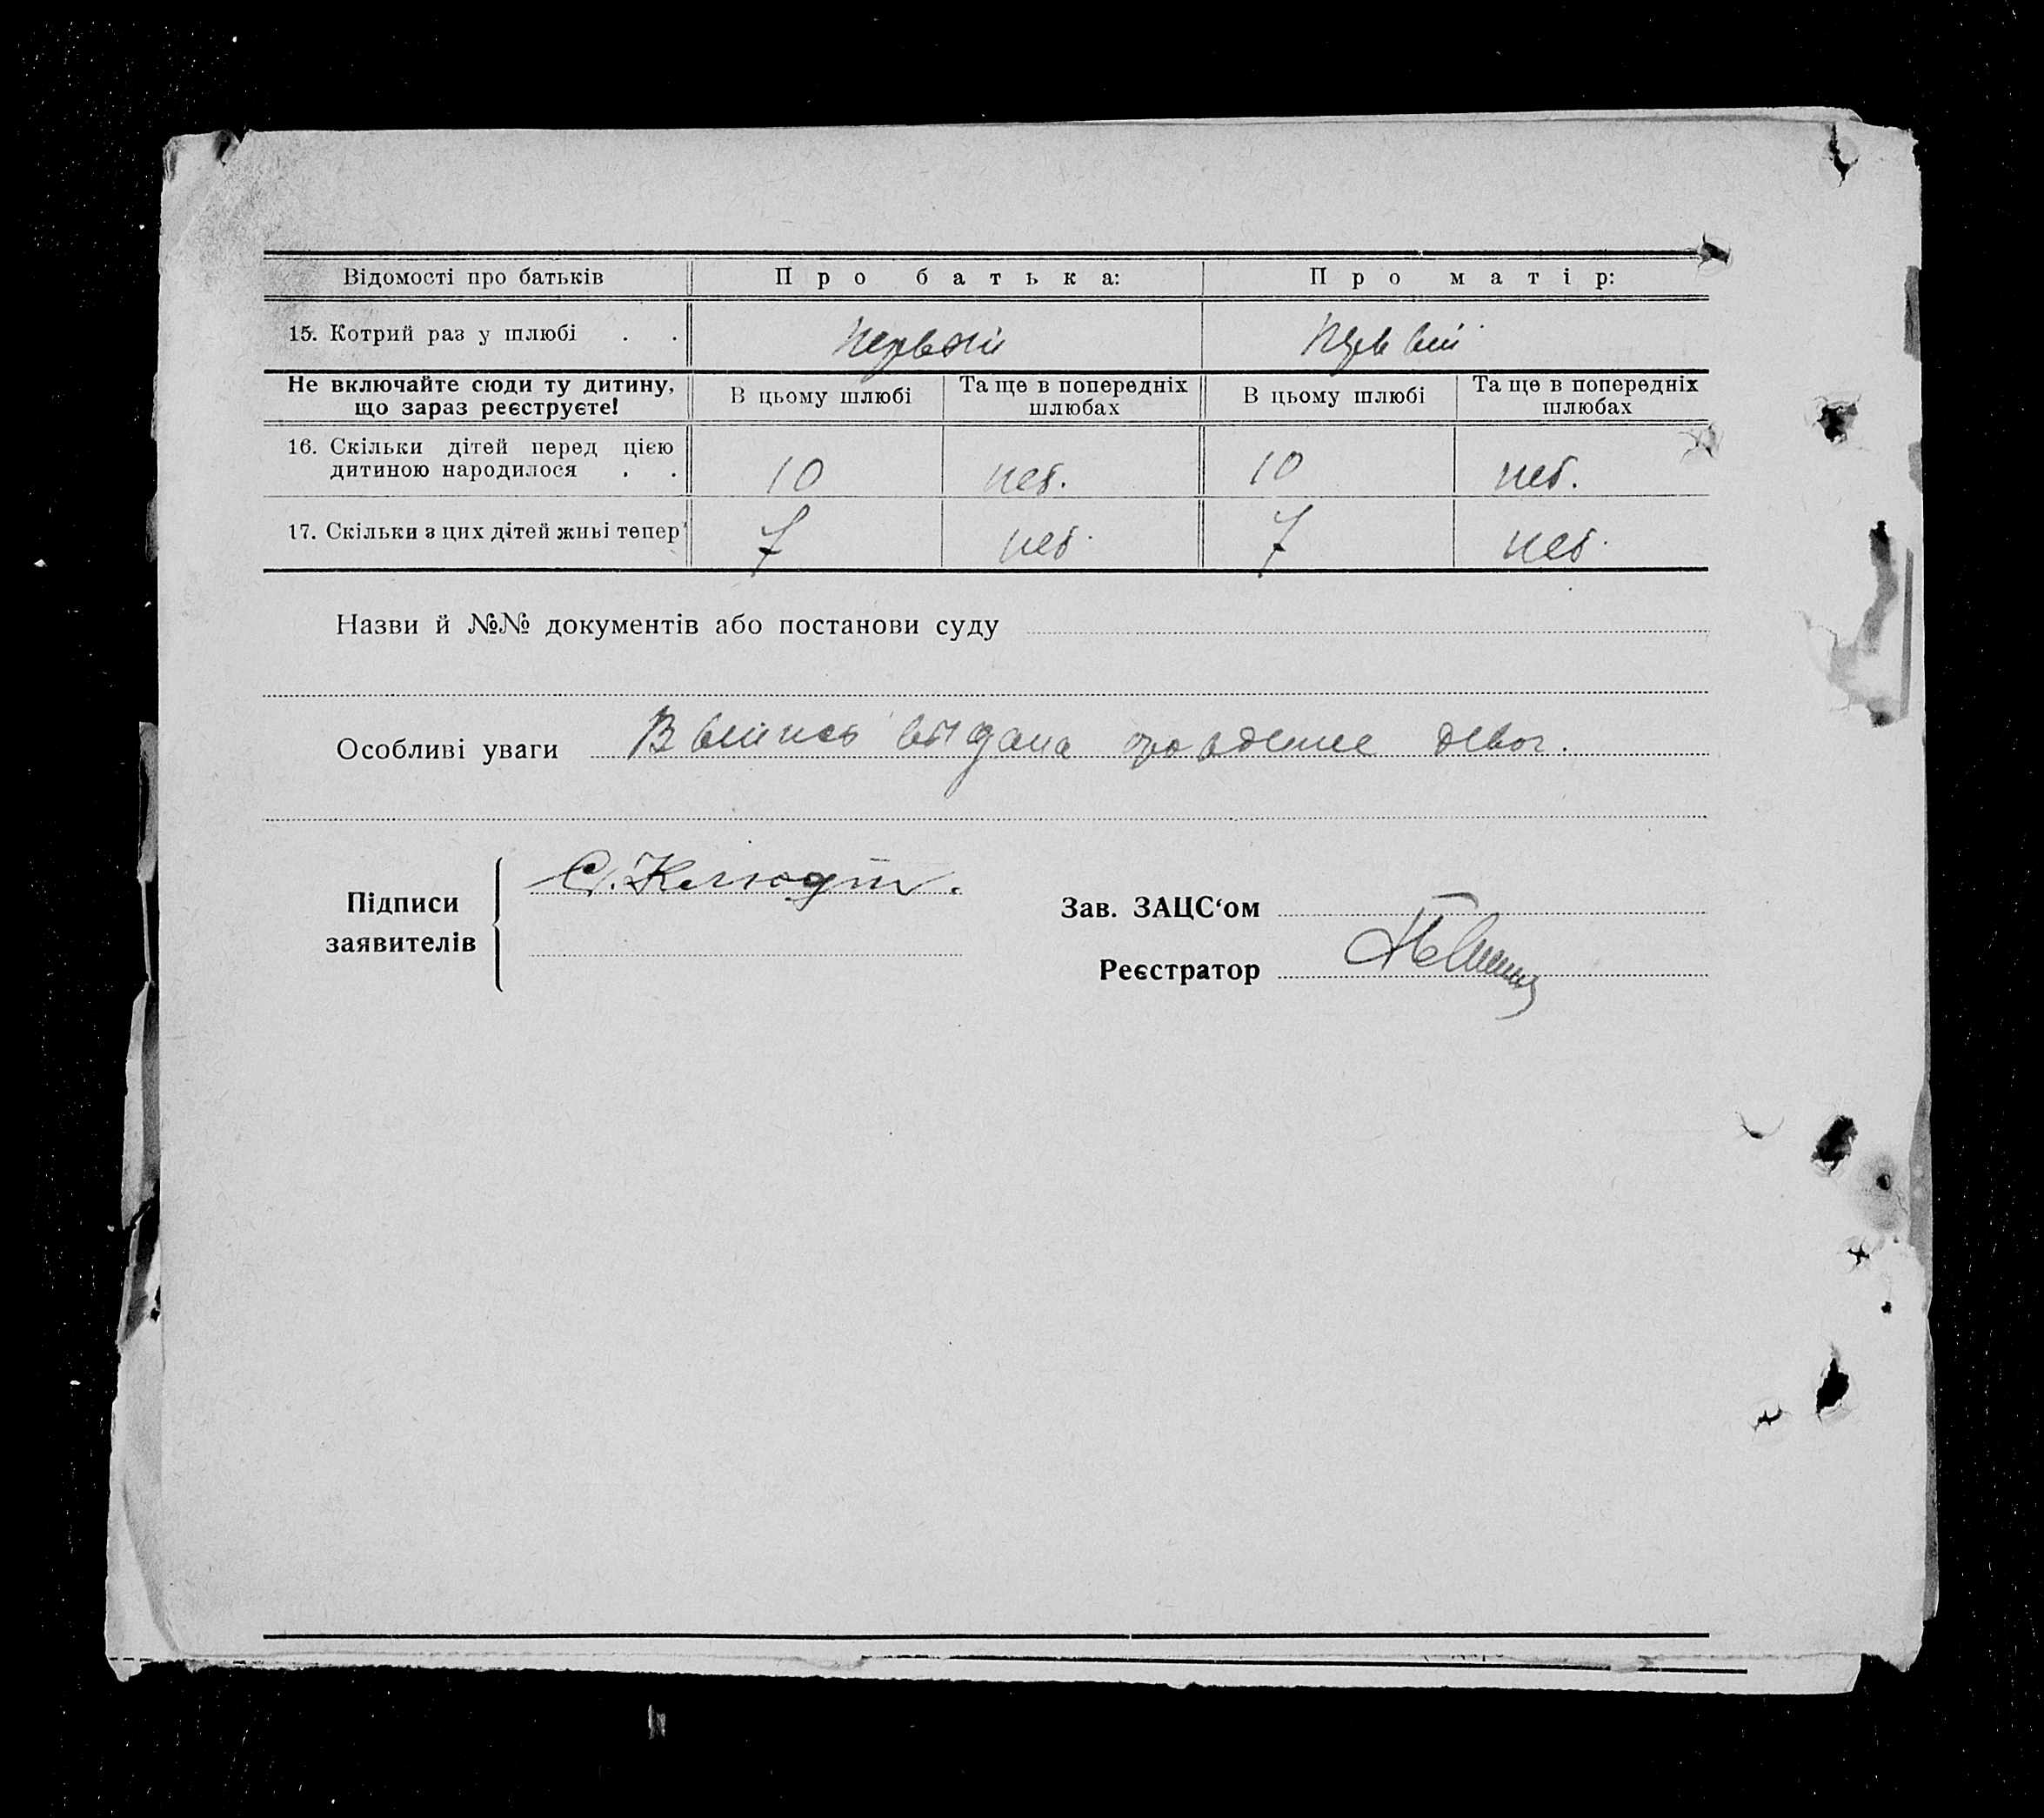 Відомості про батьків Про батька: Про матір:
15. Котрий раз у шлюбі . . первый первый
Не включайте сюди ту дитину, що зараз реєструєте! В цьому шлюбі Та ще в попередніх шлюбах В цьому шлюбі Та ще в попередніх шлюбах
16. Скільки дітей перед цією
дитиною народилося . . 10 нет. 10 нет.
17. Скільки з цих дітей живі тепер 7 нет. 7 нет.
Назви й №№ документів або постанови суду
Особливі уваги выдана
Підписи
заявителів
Зав. ЗАЦС‘ом
Реєстратор